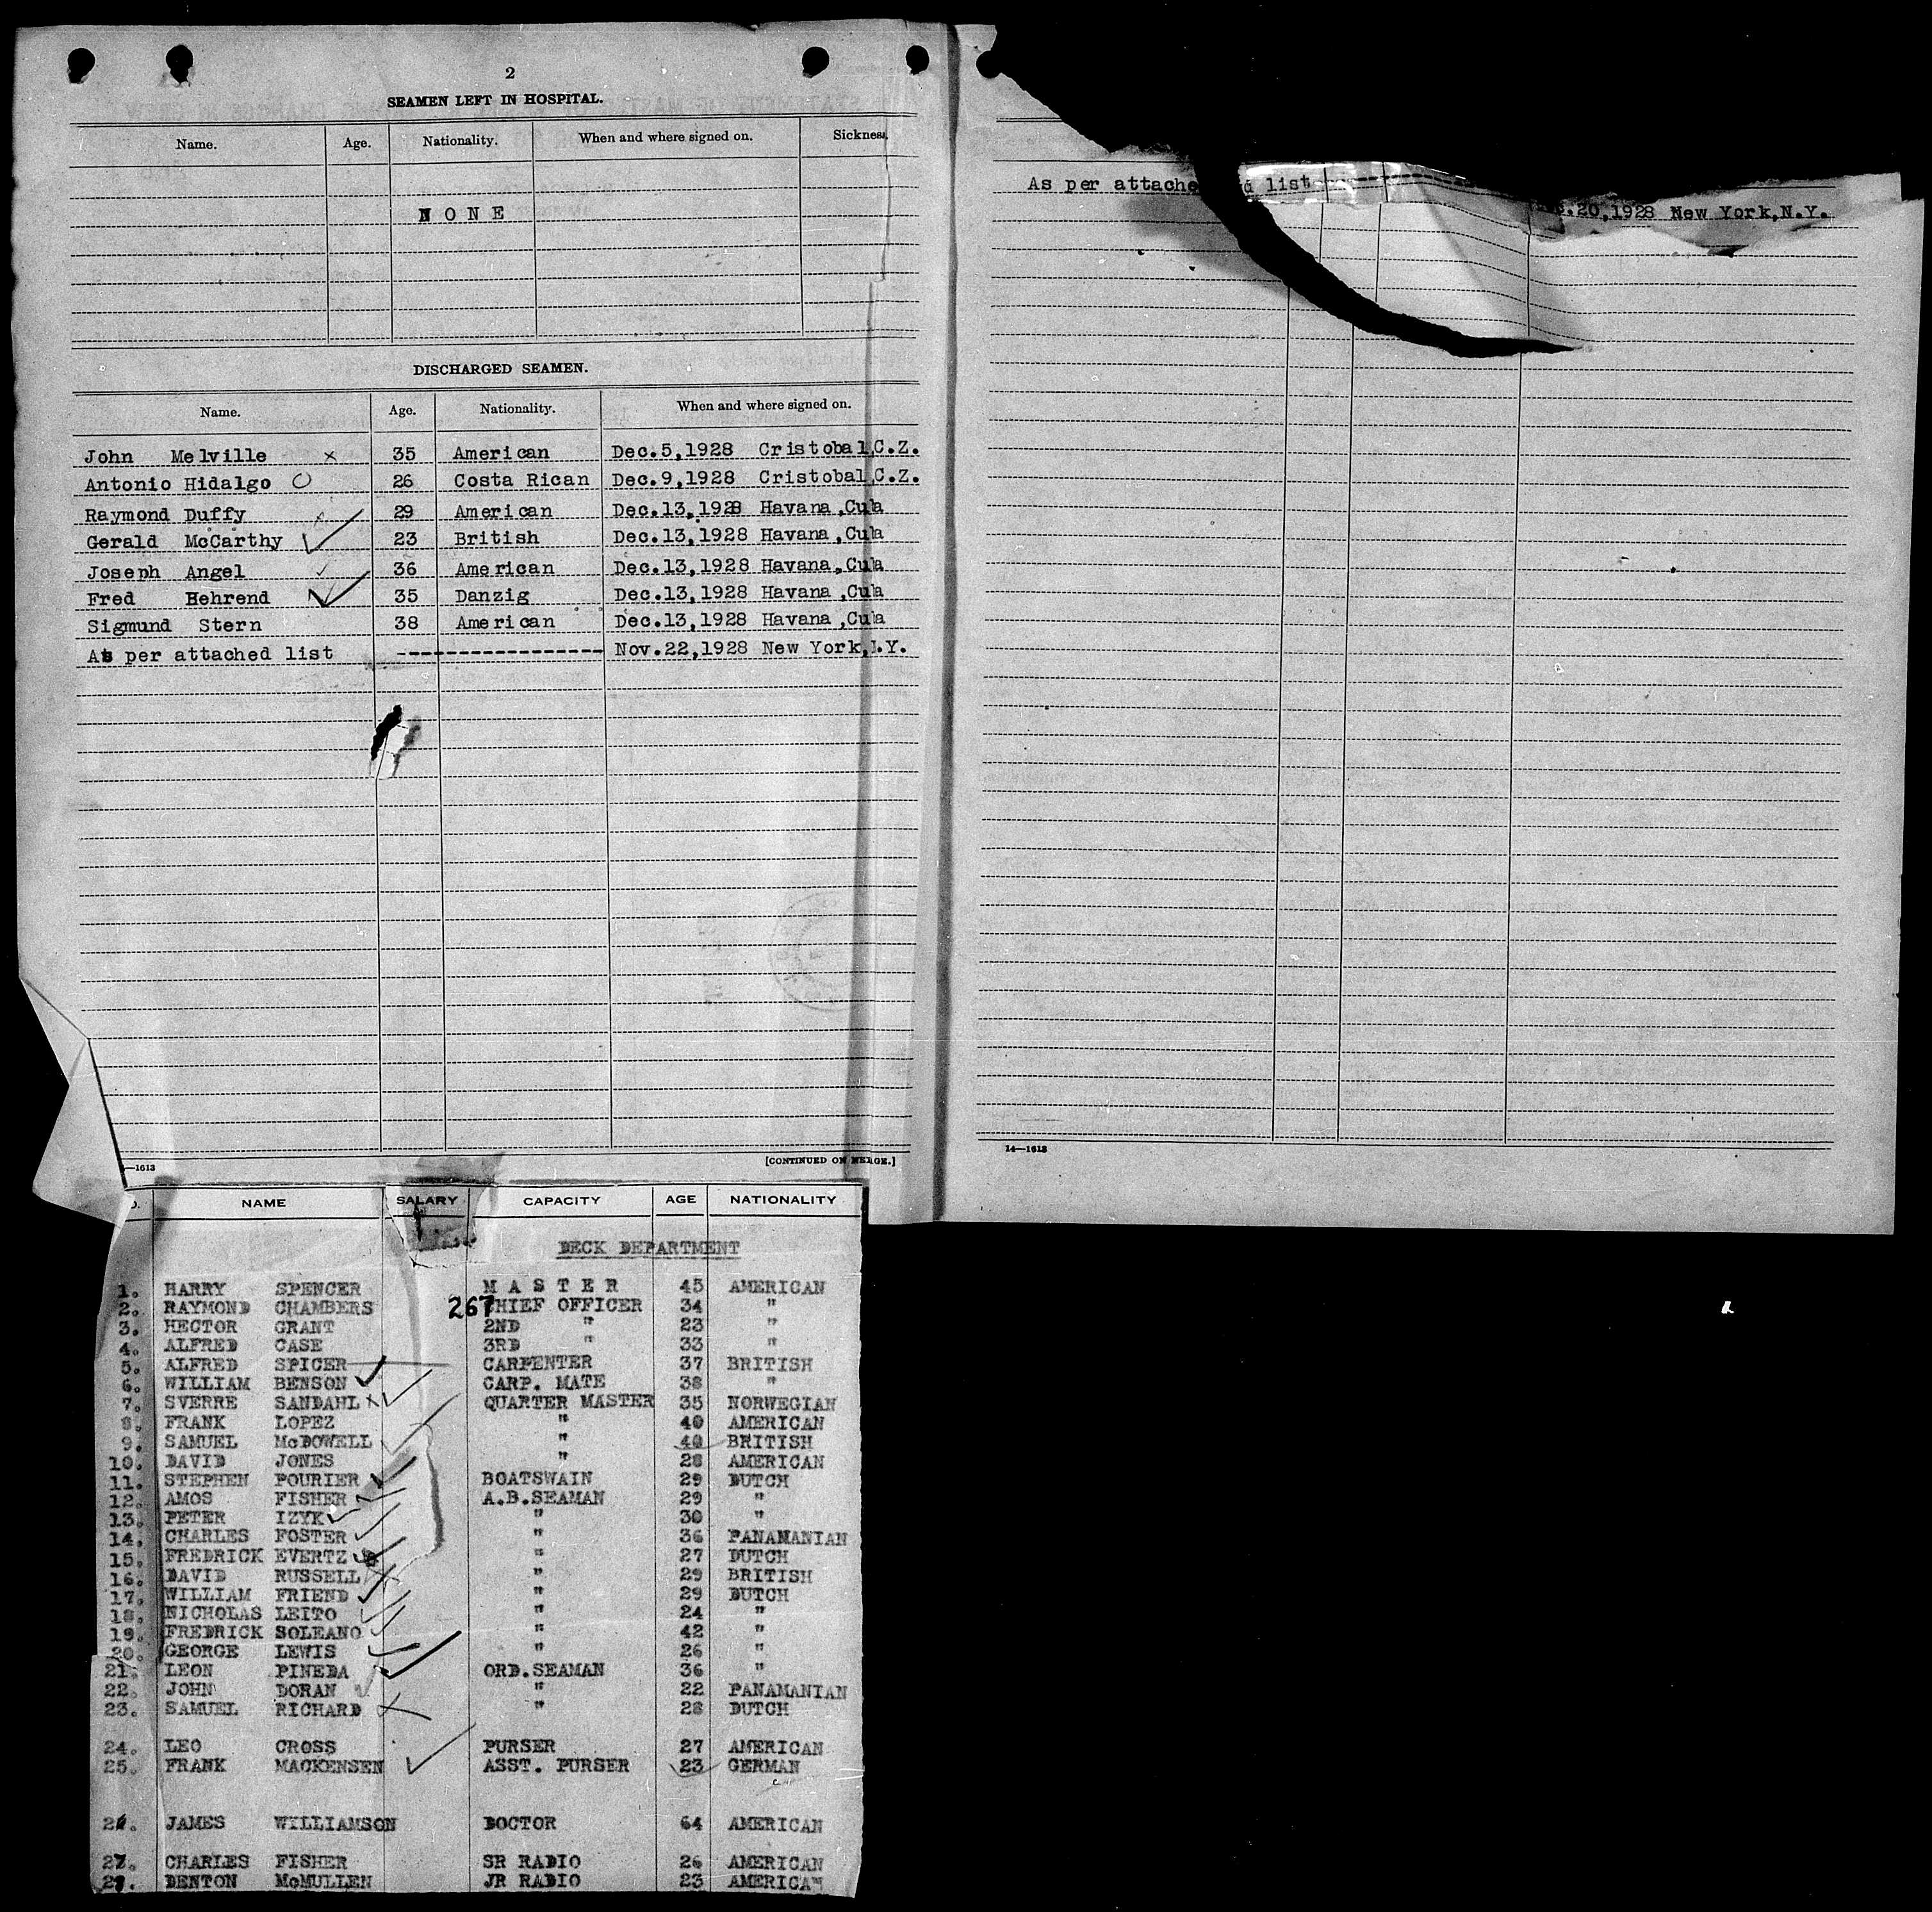 2
SEAMEN LEFT IN HOSPITAL.
Name. Age. Nationality. When and where signed on. Sickness.
NONE
DISCHARGED SEAMEN.
Name. Age. Nationality. When and where signed on.
John Melville x 35 American Dec.5,1928 Cristobal,C.Z.
Antonio Hidalgo O 26 Costa Rican Dec.9,1928 Cristobal,C.Z.
Raymond Duffy 29 American Dec.13,1928 Havana,Cu a
Gerald McCarthy ✓ 23 British Dec.13,1928 Havana,Cu a
Joseph Angel ✓ 36 American Dec.13,1928 Havana,Cu a
Fred Behrend ✓ 35 Danzig Dec.13,1928 Havana,Cu a
Sigmund Stern 38 American Dec.13,1928 Havana,Cu a
As per attached list ---------------- Nov.22,1928 New York, .Y.
—1613
[CONTINUED ON
As per attached list
.20,1928 New York,N.Y.
14—1613
NAME SALARY CAPACITY AGE NATIONALITY
DECK DEPARTMENT
1. HARRY SPENCER MASTER 45 AMERICAN
2. RAYMOND CHAMBERS 267 CHIEF OFFICER 34 "
3. HECTOR GRANT 2ND " 23 "
4. ALFRED CASE 3RD " 33 "
5. ALFRED SPICER CARPENTER 37 BRITISH
6. WILLIAM BENSON ✓ CARP. MATE 38 "
7. SVERRE SANDAHL x ✓ QUARTER MASTER 35 NORWEGIAN
8. FRANK LOPEZ " 40 AMERICAN
9. SAMUEL McDOWELL ✓ " 40 BRITISH
10. DAVID JONES " 28 AMERICAN
11. STEPHEN POURIER ✓ BOATSWAIN 29 DUTCH
12. AMOS FISHER ✓ A.B.SEAMAN 29 "
13. PETER IZYK ✓ " 30 "
14. CHARLES FOSTER ✓ " 36 PANAMANIAN
15. FREDRICK EVERTZ ✓ " 27 DUTCH
16. DAVID RUSSELL x " 29 BRITISH
17. WILLIAM FRIEND ✓ " 29 DUTCH
18. NICHOLAS LEITO ✓ " 24 "
19. FREDRICK SOLEANO ✓ " 42 "
20. GEORGE LEWIS ✓ " 26 "
21. LEON PINEDA ✓ ORD.SEAMAN 36 "
22. JOHN DORAN ✓ " 22 PANAMANIAN
23. SAMUEL RICHARD x " 28 DUTCH
24. LEO CROSS PURSER 27 AMERICAN
25. FRANK MACKENSEN ✓ ASST. PURSER 23 GERMAN
26. JAMES WILLIAMSON DOCTOR 64 AMERICAN
27. CHARLES FISHER SR RADIO 26 AMERICAN
28. DENTON McMULLEN JR RADIO 23 AMERICAN